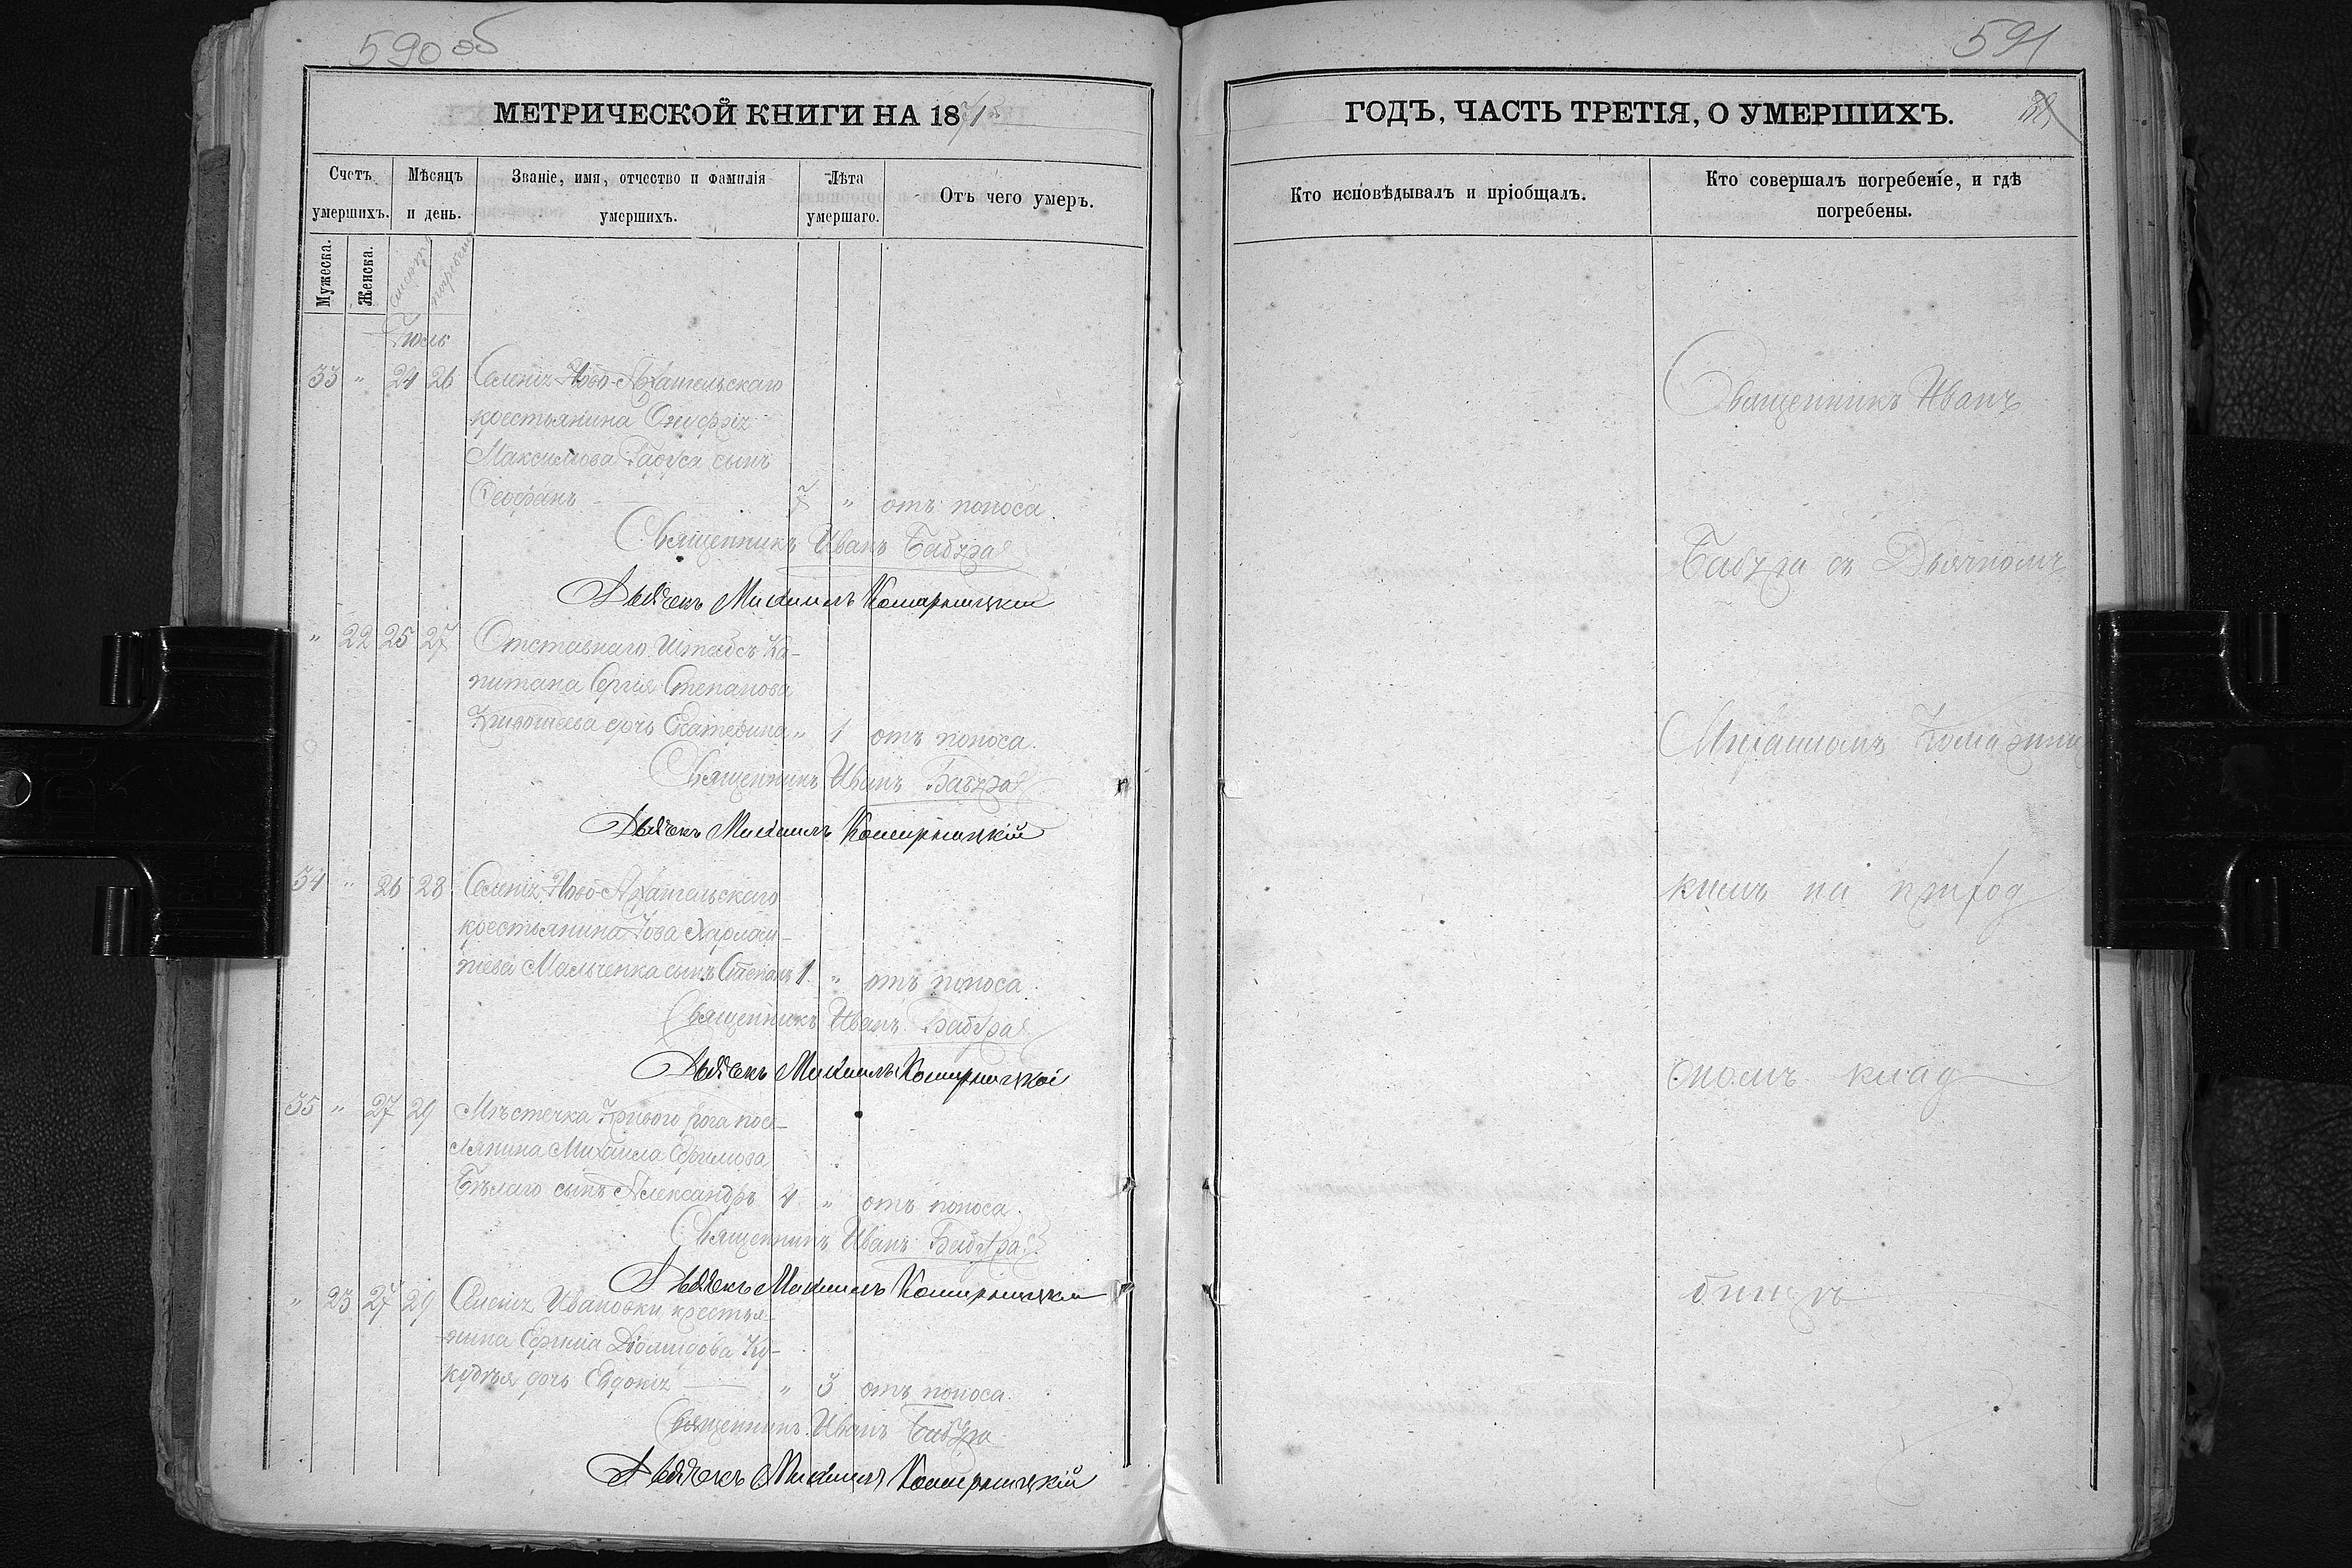 590 об
МЕТРИЧЕСКОЙ КНИГИ НА 1871
Счетъ умершихъ.
Мѣсяцъ и день.
Званіе, имя, отчество и фамилія умершихъ.
Лѣта умершаго.
Отъ чего умеръ.
Мужеска.
Женска.
смерти
погребен
Іюль
33 " 24 26 Селенія Ново-Архангельскаго
крестьянина Онуфрія
Максимова сынъ
Феофанъ 7 " отъ поноса.
Священникъ Иванъ Бабура
Дьячекъ Михаилъ Комарницкій
" 22 25 27 Отставнаго Штабсъ Ка-
питана Сергія Степанова
дочь Екатерина " 1 отъ поноса.
Священникъ Иванъ Бабура
Дьячекъ Михаилъ Комарницкій
34 " 26 28 Селенія Ново-Архангельскаго
крестьянина Іова Харлам-
піева Мальченка сынъ Степанъ 1 " отъ поноса.
Священникъ Иванъ Бабура
Дьячекъ Михаилъ Комарницкій
35 " 27 29 Мѣстечка Кривого рога посе-
лянина Михаила Ефимова
Бѣлаго сынъ Александръ 4 " отъ поноса.
Священникъ Иванъ Бабура
Дьячекъ Михаилъ Комарницкій
" 23 27 29 Селенія Ивановки крестья-
нина Ефима Діомидова Ку-
дочь Евдокія " 3 отъ поноса.
Священникъ Иванъ Бабура
Дьячекъ Михаилъ Комарницкій
591
ГОДЪ, ЧАСТЬ ТРЕТІЯ, О УМЕРШИХЪ.
Кто исповѣдывалъ и пріобщалъ.
Кто совершалъ погребеніе, и гдѣ погребены.
Священникъ Иванъ
Бабура съ Дьячкомъ
Михаиломъ Комарниц
кимъ на приход
скомъ клад
бищѣ